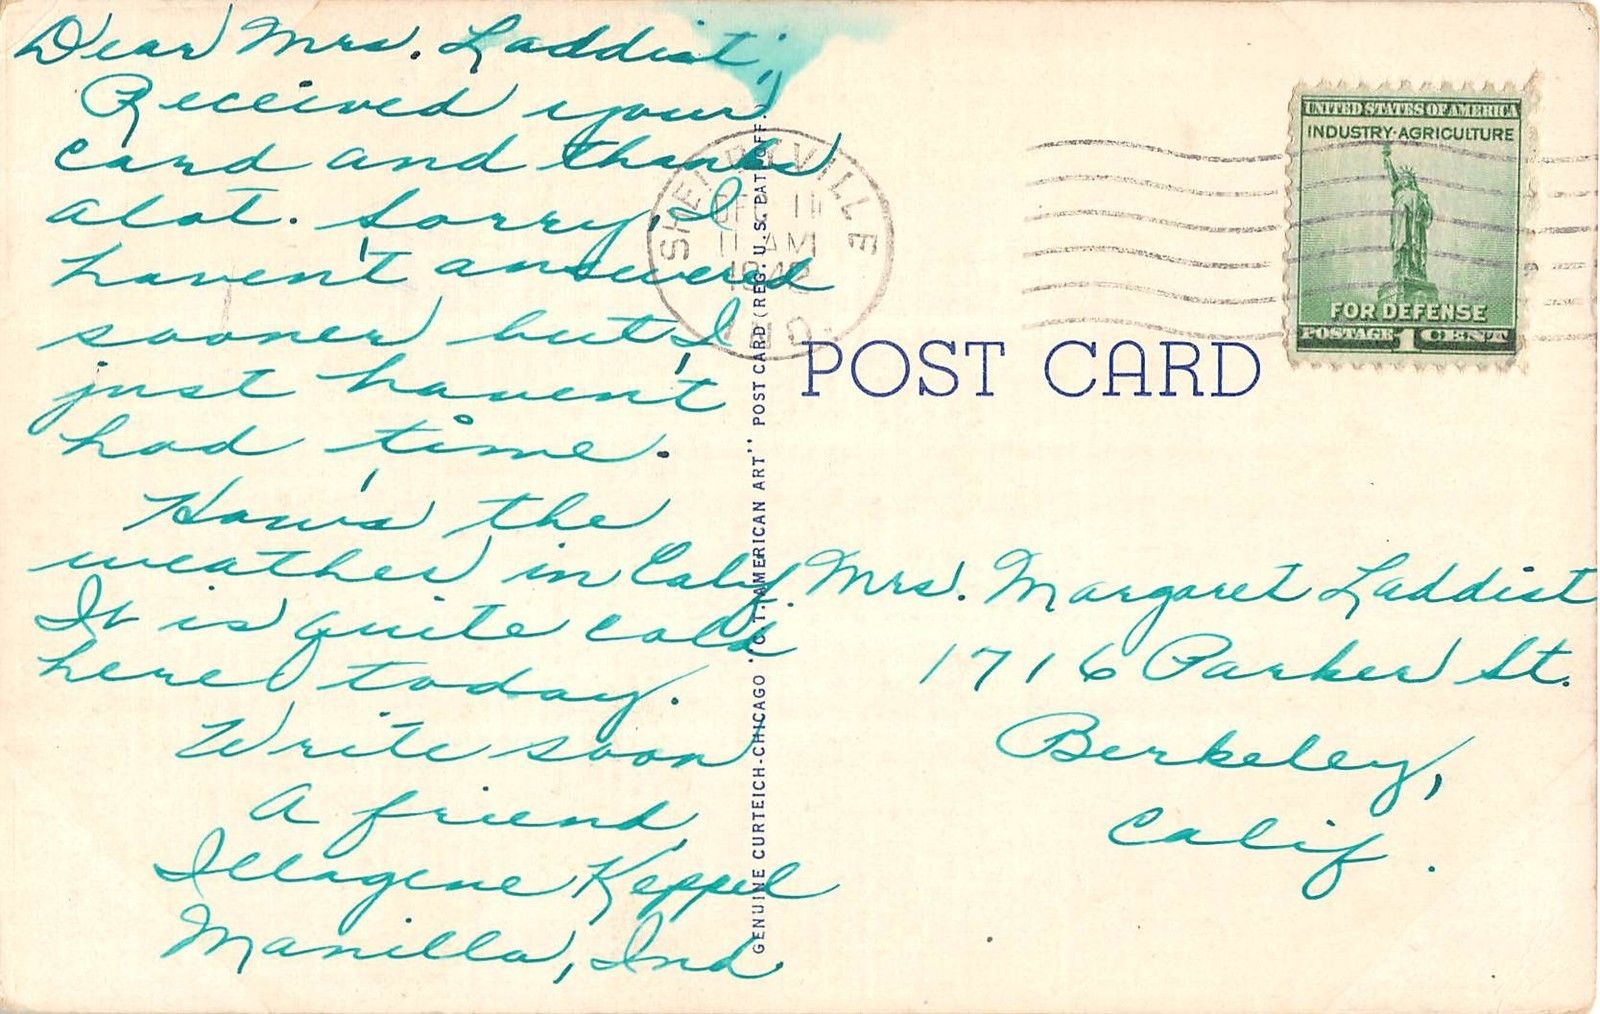 Dear Mrs. Laddist,
Received your
card and thanks
alot. Sorry, I
haven't answered
sooner but, I
just haven't
had time.
How's the
weather in Calif.
It is quite cold
here today.
Write soon
A friend,
Illagene Keppel
Manilla, Ind.
GENUINE CURTEICH-CHICAGO "C.T. AMERICAN ART" POST CARD (REG. U.S. PAT. OFF.)
SHELBYVILLE
11
11 AM
IND.
POST CARD
UNITED STATES OF AMERICA
INDUSTRY·AGRICULTURE
FOR DEFENSE
POSTAGE 1 CENT
Mrs. Margaret Laddist
1716 Parker St.
Berkeley,
Calif.